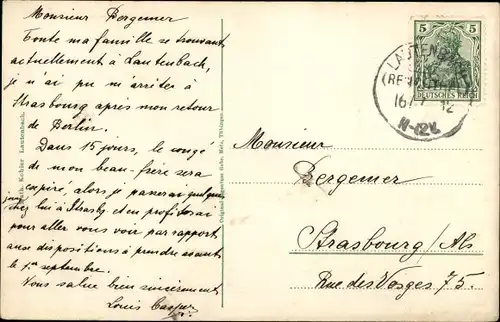 Monsieur Bergemer
Toute ma famille se trouvant
actuellement à Lautenbach,
je n'ai pu m'arrêter à
Strasbourg après mon retour
de Berlin.
Dans 15 jours, le congé
de mon beau-frère sera
expiré, alors je passerai quelques
jours chez lui à Strasbg et en profiterai
pour aller vous voir par rapport
aux dispositions à prendre avant
le 1er septembre.
Vous salue bien sincèrement
Louis Casper
Kohler Lautenbach.
Metz, Thüringen
5 5
DEUTSCHES REICH
LAUTENBACH
12
11-12V.
Monsieur
Bergemer
Strasbourg/Als
Rue des Vosges 75.